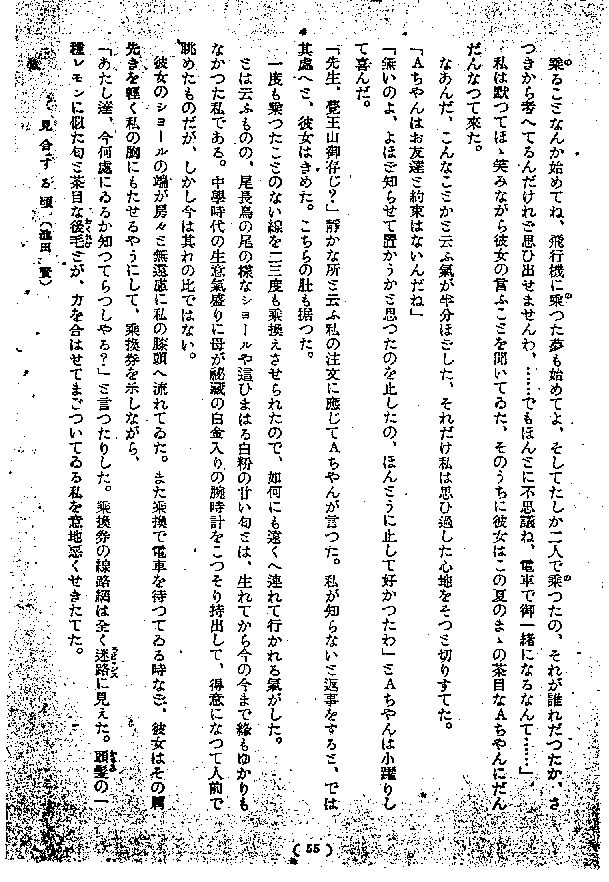 乗ることなんか始めてね、飛行機に乗つた夢も始めてよ、そしてたしか二人で乗つたの、それが誰れだつたか、さ
つきから考へてるんだけれど思ひ出せませんわ、……でもほんとに不思議ね、電車で御一緒になるなんて……」
私は黙つてほゝ笑みながら彼女の言ふことを聞いてゐた、そのうちに彼女はこの夏のまゝの茶目なAちやんにだん
だんなつて来た。
なあんだ、こんなことかと云ふ氣が半分ほどした、それだけ私は思ひ過した心地をそつと切りすてた。
「Aちやんはお友達と約束はないんだね」
「無いのよ、よほど知らせて置かうかと思つたのを止したの、ほんとうに止して好かつたわ」とAちやんは小躍りし
て喜んだ。
「先生、愛王山御存じ?」静かな所と云ふ私の注文に應じてAちやんが言つた。私が知らないと返事をすると、では
其處へと、彼女はきめた。こちらの肚も据つた。
一度も乗つたことのない線を二三度も乗換えさせられたので、如何にも遠くへ連れて行かれる氣がした。
とは云ふものの、尾長鳥の尾の様なショールや這ひまはる白粉の甘い匂とは、生れてから今の今まで縁もゆかりも
なかつた私である。中學時代の生意氣盛りに母が祕蔵の白金入りの腕時計をこつそり持出して、得意になつて人前で
眺めたものだが、しかし今は其れの比ではない。
彼女のショールの端が房々と無遠慮に私の膝頭へ流れてゐた。また乗換で電車を待つてゐる時など、彼女はその肩
先きを輕く私の胸にもたせるやうにして、乗換券を示しながら、
「あたし達、今何處にゐるか知つてらつしやる?」と言つたりした。乗換券の線路網は全く迷路に見えた。頭髪の一
種レモンに似た匂と茶目な後毛とが、力を合はせてまごついてゐる私を意地惡くせきたてた。
見合する頃(池田 賢)
(55)